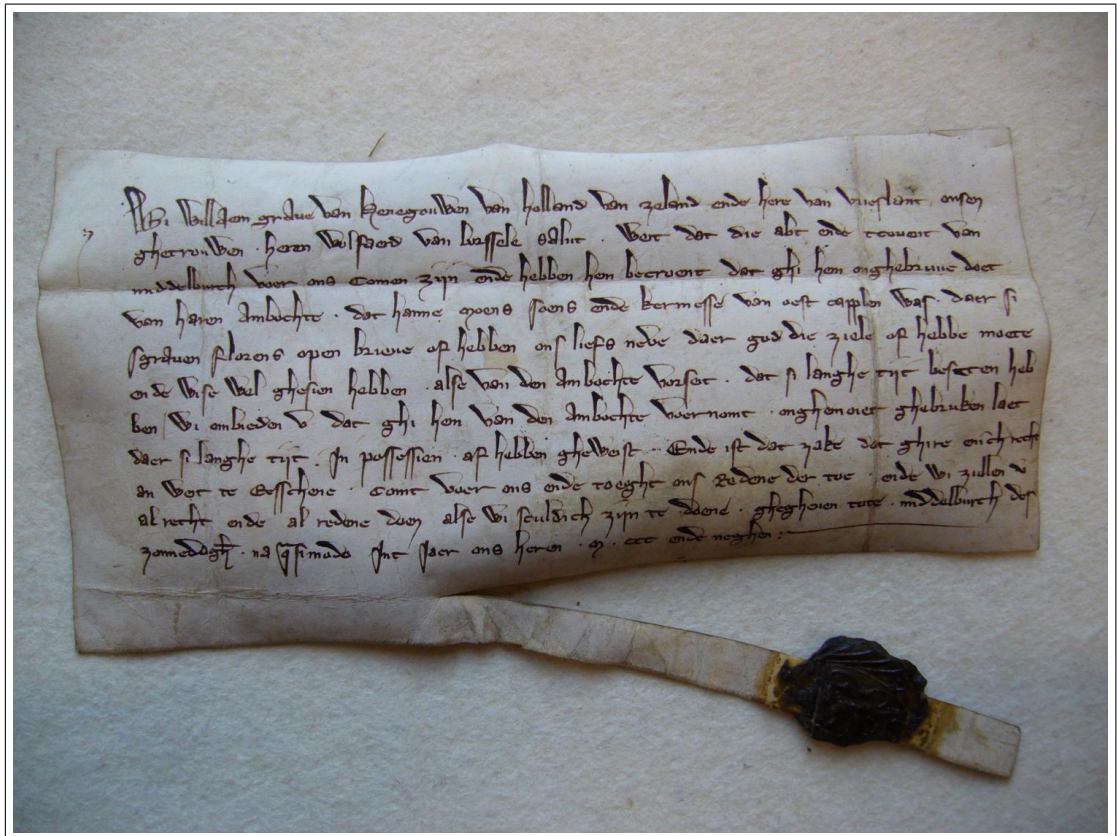 Wi Willaem graue van henegouwen van holland van zeland ende here van vrieslant onsen
ghetrouwen . heren wolfaerd van borssele salut . Wet dat die abt ende tcouent van
middelburch voer ons comen zijn ende hebben hem becroent dat ghi hem onghebruuc doet
van haren Ambochte . dat hanne moens soens ende kermesse van oest capplen was . daer si
sgrauen florens open brieue of hebben ons liefs neve daer god die ziele of hebbe moete
ende wise wel ghesien hebben . alse van den Ambochte vorset . dat si langhe tijt beseten heb
ben / wi ombieden v dat ghi hem van den Ambochte voernomt . onghenoiet ghebruken laet
daer si langhe tijt . In possessien . af hebben gheweist . Ende ist dat zake dat ghire enich recht
an wet te hebbene . comt voer ons ende toeght ons Redene der toe ende wi zullen v
al recht ende al redene doen alse wi sculdich zijn te doene . ghegheuen tote . middelburch des
zonnedaghes . na q̄simodo Int Jaer ons heren . m . ccc ende neghen :